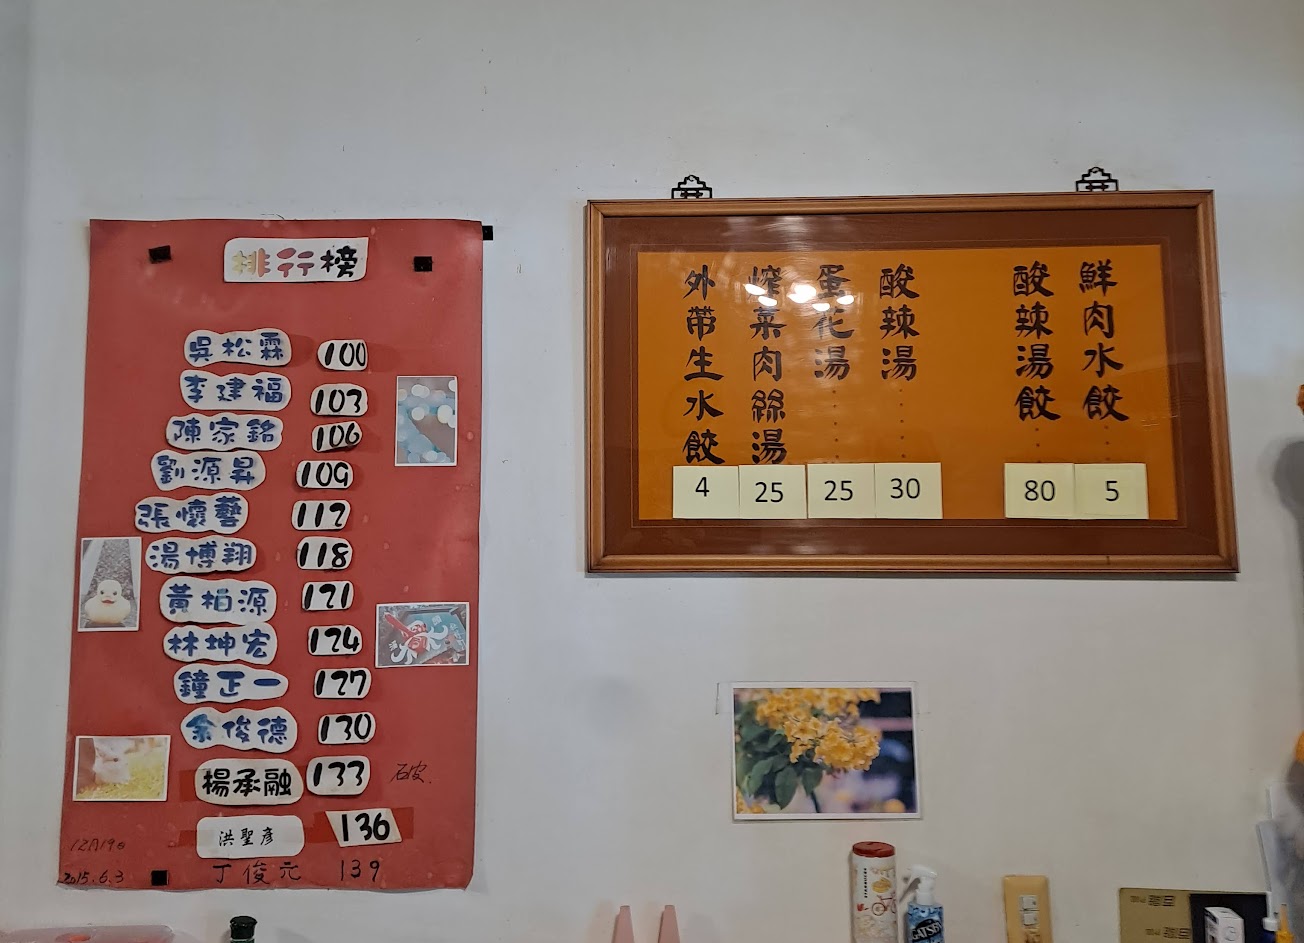 排行榜
吳松霖 100
李建福 103
陳家銘 106
劉源昇 109
張懷藝 112
湯博翔 118
黃柏源 121
林坤宏 124
鐘正一 127
余俊德 130
楊承融 133 破.
洪聖彥 136
丁俊元 139
12月19日
2015.6.3
鮮肉水餃 5
酸辣湯餃 80
酸辣湯 30
蛋花湯 25
榨菜肉絲湯 25
外帶生水餃 4
GATSBY